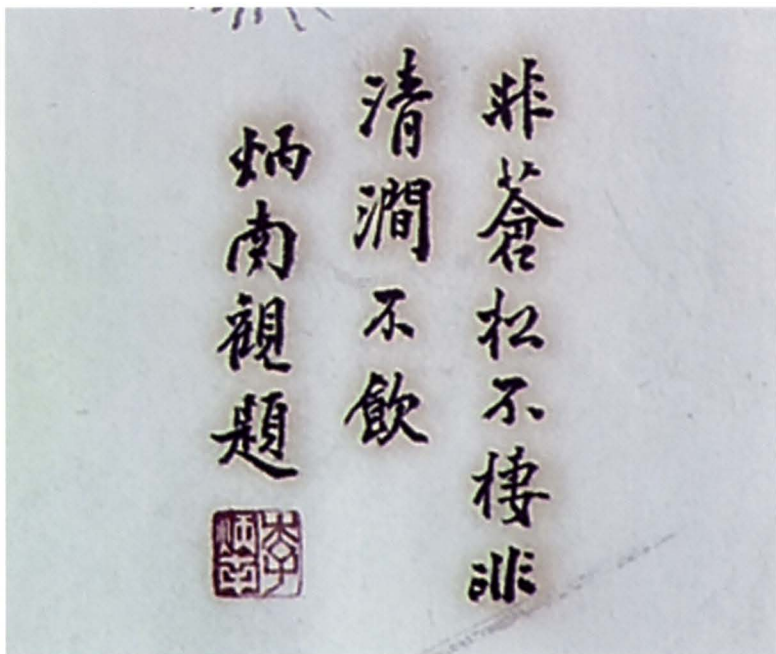 非蒼松不棲非
清澗不飲
炳南觀題
李炳南